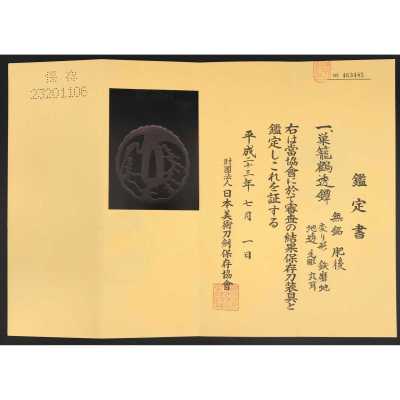 鑑定書
一、巣籠鶴透鐔
無銘 肥後
変り形 鉄磨地
地透 毛彫 丸耳
右は當協會に於て審査の結果保存刀装具と
鑑定しこれを証する
平成二十三年七月一日
財團法人日本美術刀剣保存協會
保存
23201106